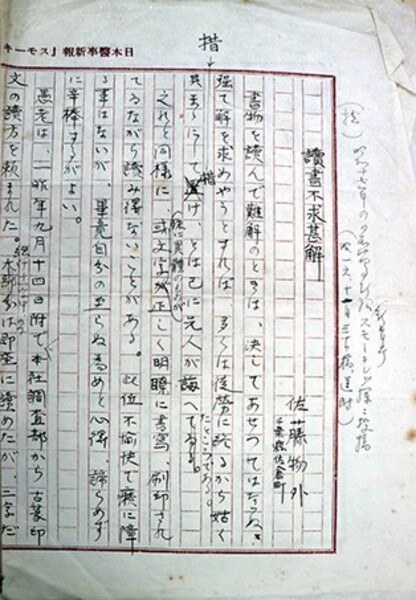 日本醫事新報「スモーキ
措
讀書不求甚解
佐藤物外
千葉縣佐倉町
書物を読んで難解のときは、決してあせつてはならぬ、
强て解を求めやうとすれば、多くは徒勞に終るから姑く
其まゝにして置け、とは已に先人が誨へてゐる。
措
たところである。
之れと同様に、或文字が正しく明瞭に書寫、刷印され
てゐながら読み得ないことがある。此位不愉快で癪に障
る事はないが、畢竟自分の至らぬ為めと心得、諦らめず
に辛棒するがよい。
愚老は、一昨年九月十四日附で本社調査部から古篆印
文の讀方を頼まれた。部分は即座に讀めたが、二字だ